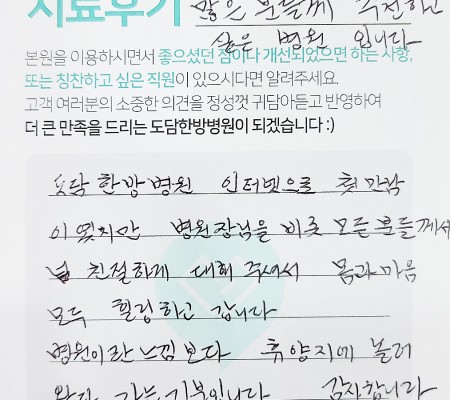 치료후기 많은 분들께 추천하고
싶은 병원 입니다
본원을 이용하시면서 좋으셨던 점이나 개선되었으면 하는 사항,
또는 칭찬하고 싶은 직원이 있으시다면 알려주세요.
고객 여러분의 소중한 의견을 정성껏 귀담아듣고 반영하여
더 큰 만족을 드리는 도담한방병원이 되겠습니다 :)
도담 한방병원 인터넷으로 첫 만남
이였지만 병원장님을 비롯 모든분들께서
넘 친절하게 대해 주셔서 몸과 마음
모두 힐링하고 갑니다
병원이란 느낌 보다 휴양지에 놀러
왔다 가는 기분입니다 감사합니다